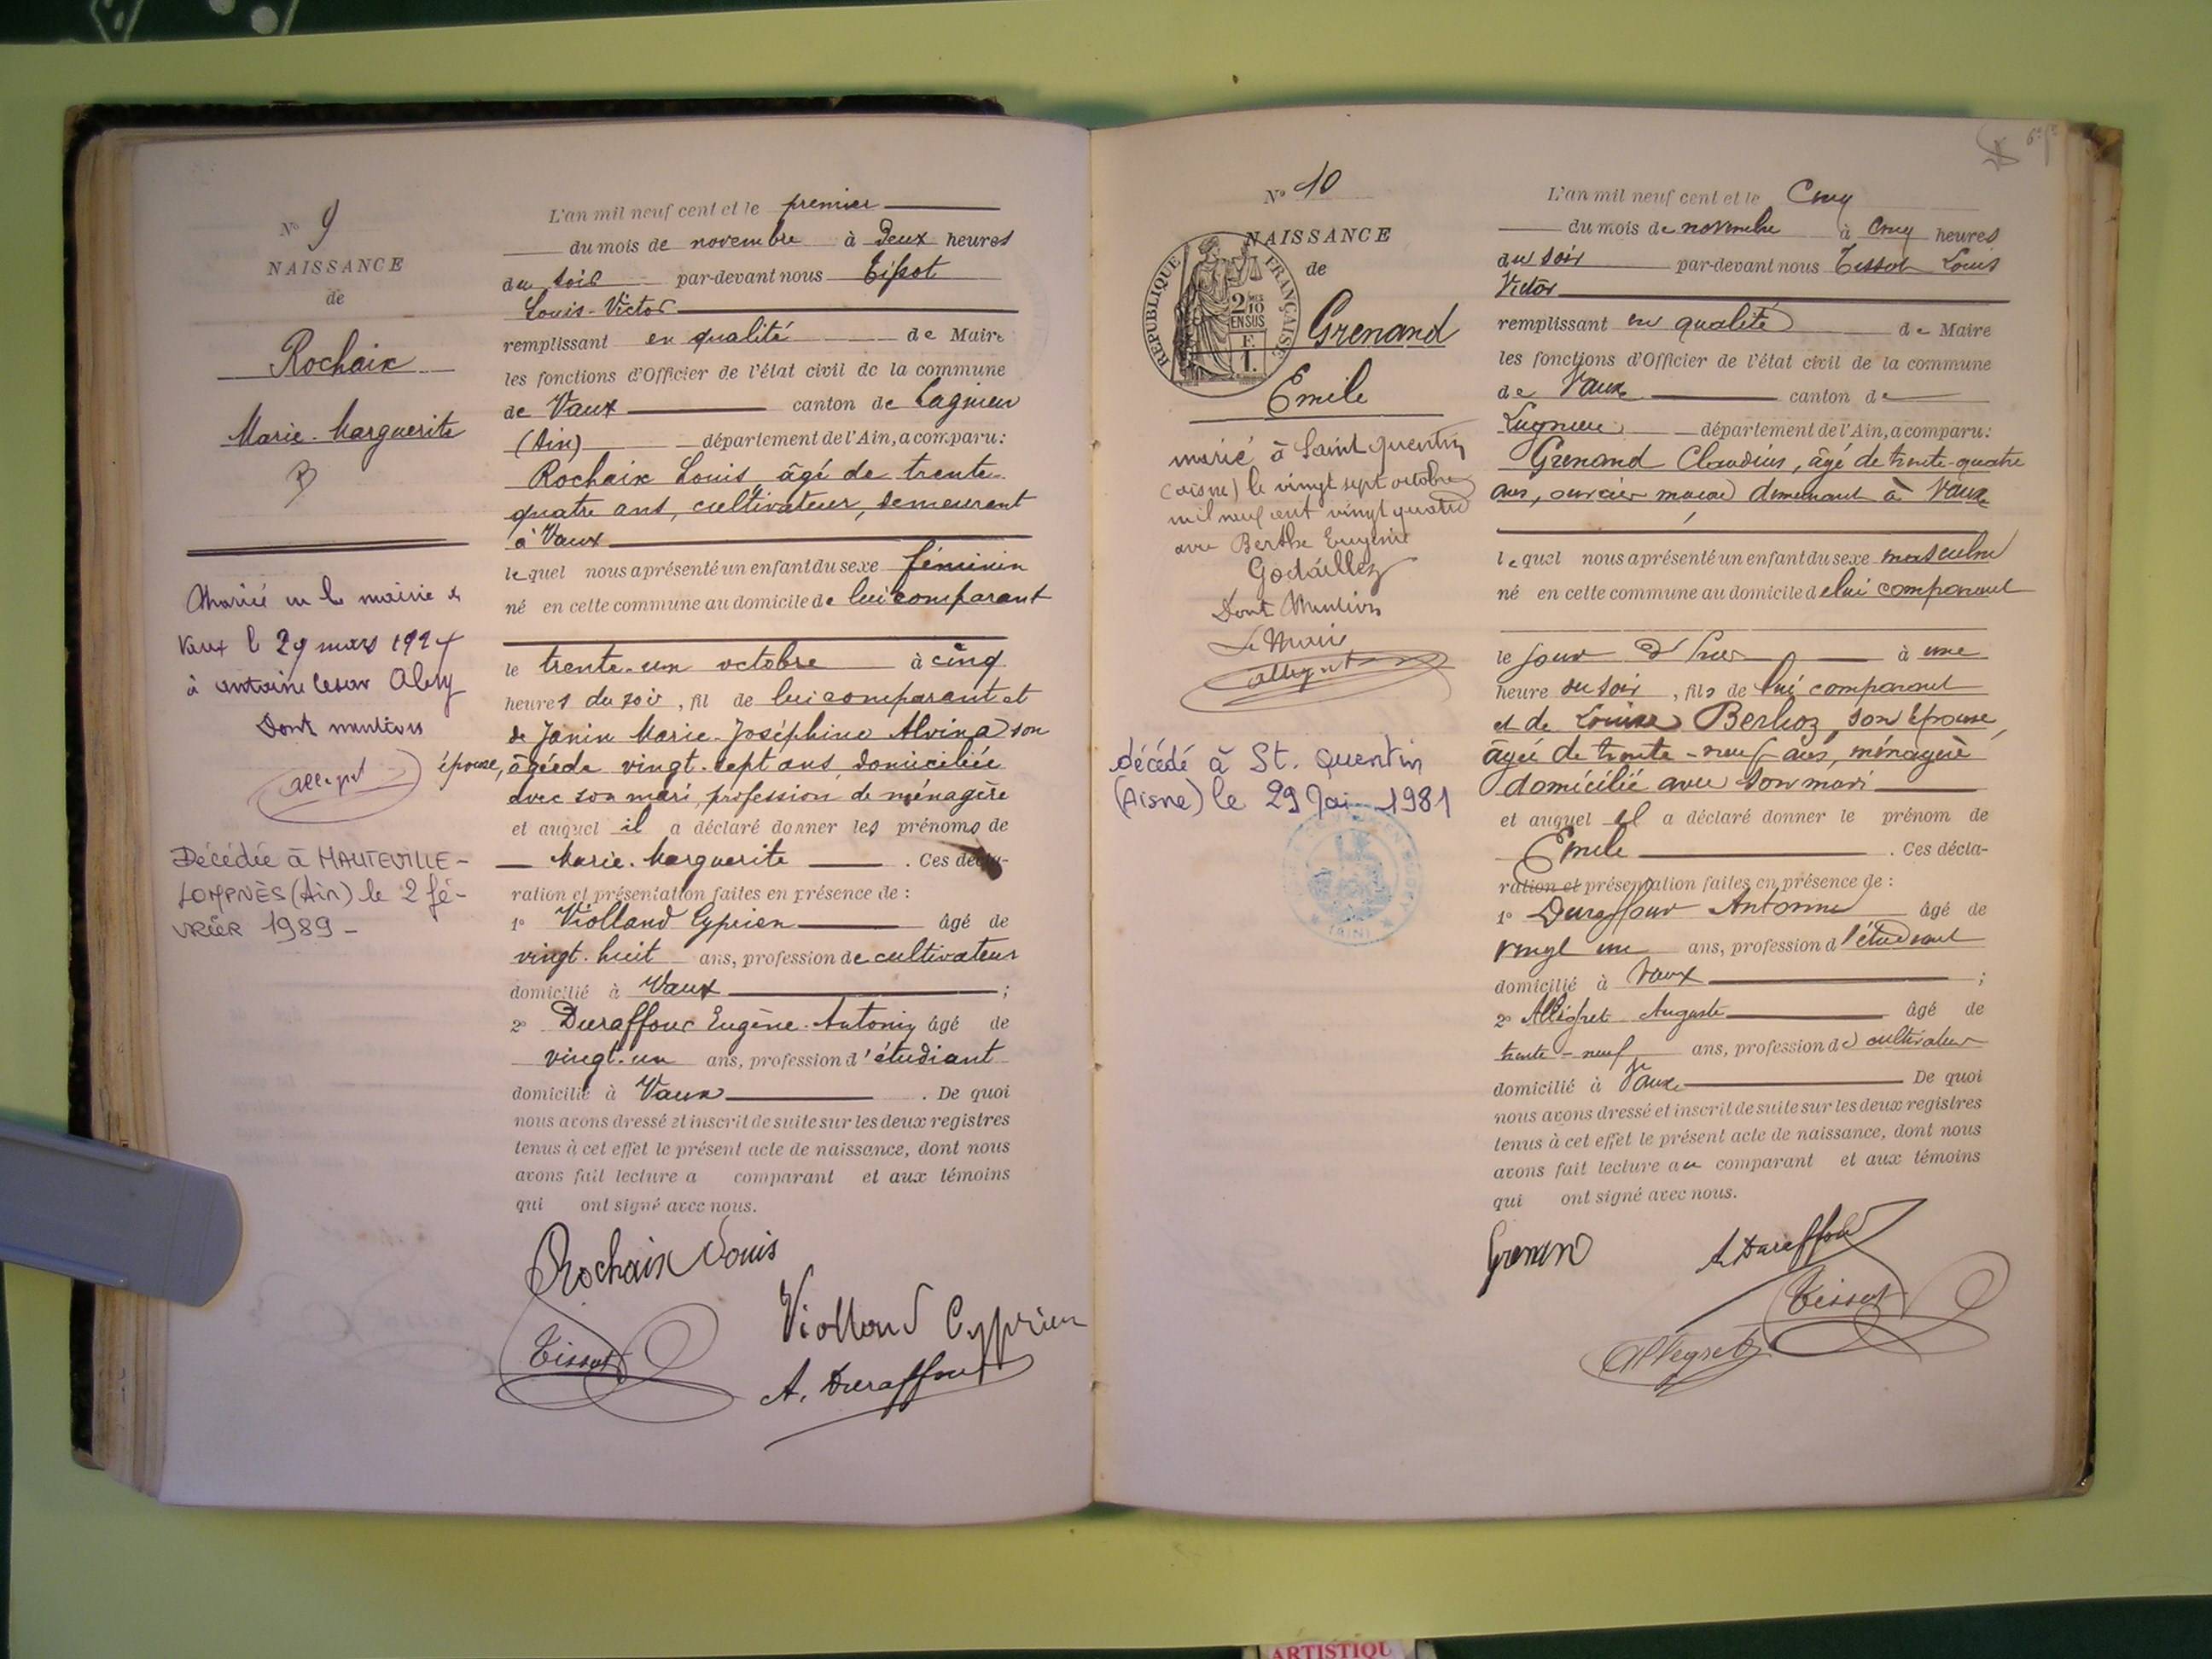 N° 9
NAISSANCE
de
Rochaix
Marie-Marguerite
Mariée en la mairie de
Vaux le 29 mars 1924
à antoine Cesar
Dont mention
Décédée à HAUTEVILLE-
LOMPNÈS (Ain) le 2 fé-
vrier 1989 -
L'an mil neuf cent et le premier
du mois de novembre à Deux heures
du soir par-devant nous Tissot
Louis-Victor
remplissant en qualité de Maire
les fonctions d'Officier de l'état civil de la commune
de Vaux canton de Lagnieu
(Ain) département de l'Ain, a comparu:
Rochaix Louis, âgé de trente-
quatre ans, cultivateur, demeurant
à Vaux
lequel nous a présenté un enfant du sexe féminin
né en cette commune au domicile de lui comparant
le trente-un octobre à cinq
heures du soir, fil de lui comparant et
de Janin Marie-Joséphine Alvina son
épouse, âgée de vingt-sept ans, domiciliée
avec son mari, profession de ménagère
et auquel il a déclaré donner les prénoms de
Marie-Marguerite . Ces décla-
ration et présentation faites en présence de :
1° Violland Cyprien âgé de
vingt-huit ans, profession de cultivateur
domicilié à Vaux ;
2° Duraffour Eugène-Antonin âgé de
vingt-un ans, profession d'étudiant
domicilié à Vaux . De quoi
nous avons dressé et inscrit de suite sur les deux registres
tenus à cet effet le présent acte de naissance, dont nous
avons fait lecture a comparant et aux témoins
qui ont signé avec nous.
Rochaix Louis
Violland Cyprien
Tissot
A. Duraffour
N° 10
NAISSANCE
de
RÉPUBLIQUE FRANÇAISE
2/10 EN SUS
F. 1.
Grenand
Emile
marié à Saint Quentin
(aisne) le vingt sept octobre
mil neuf cent vingt quatre
avec Berthe Eugénie
Godaillez
Dont Mention
Le Maire
Allegret
décédé à St. Quentin
(Aisne) le 29 1981
(AIN)
L'an mil neuf cent et le Cinq
du mois de novembre à Cinq heures
du soir par-devant nous Tissot Louis
Victor
remplissant en qualité de Maire
les fonctions d'Officier de l'état civil de la commune
de Vaux canton de
Lagnieu département de l'Ain, a comparu:
Grenand Claudius, âgé de trente-quatre
ans, ouvrier maçon demeurant à Vaux
lequel nous a présenté un enfant du sexe masculin
né en cette commune au domicile de lui comparant
le jour d'hier à une
heure du soir, fils de lui comparant
et de Louise Berlioz, son épouse,
âgée de trente-neuf ans, ménagère
domicilié avec son mari
et auquel il a déclaré donner le prénom de
Emile . Ces décla-
ration et présentation faites en présence de :
1° Duraffour Antonin âgé de
vingt un ans, profession d'étudiant
domicilié à Vaux ;
2° Allégret Auguste âgé de
trente-neuf ans, profession de cultivateur
domicilié à Vaux De quoi
nous avons dressé et inscrit de suite sur les deux registres
tenus à cet effet le présent acte de naissance, dont nous
avons fait lecture au comparant et aux témoins
qui ont signé avec nous.
Grenand
A Duraffour
Tissot
Allegret
ARTISTIQU